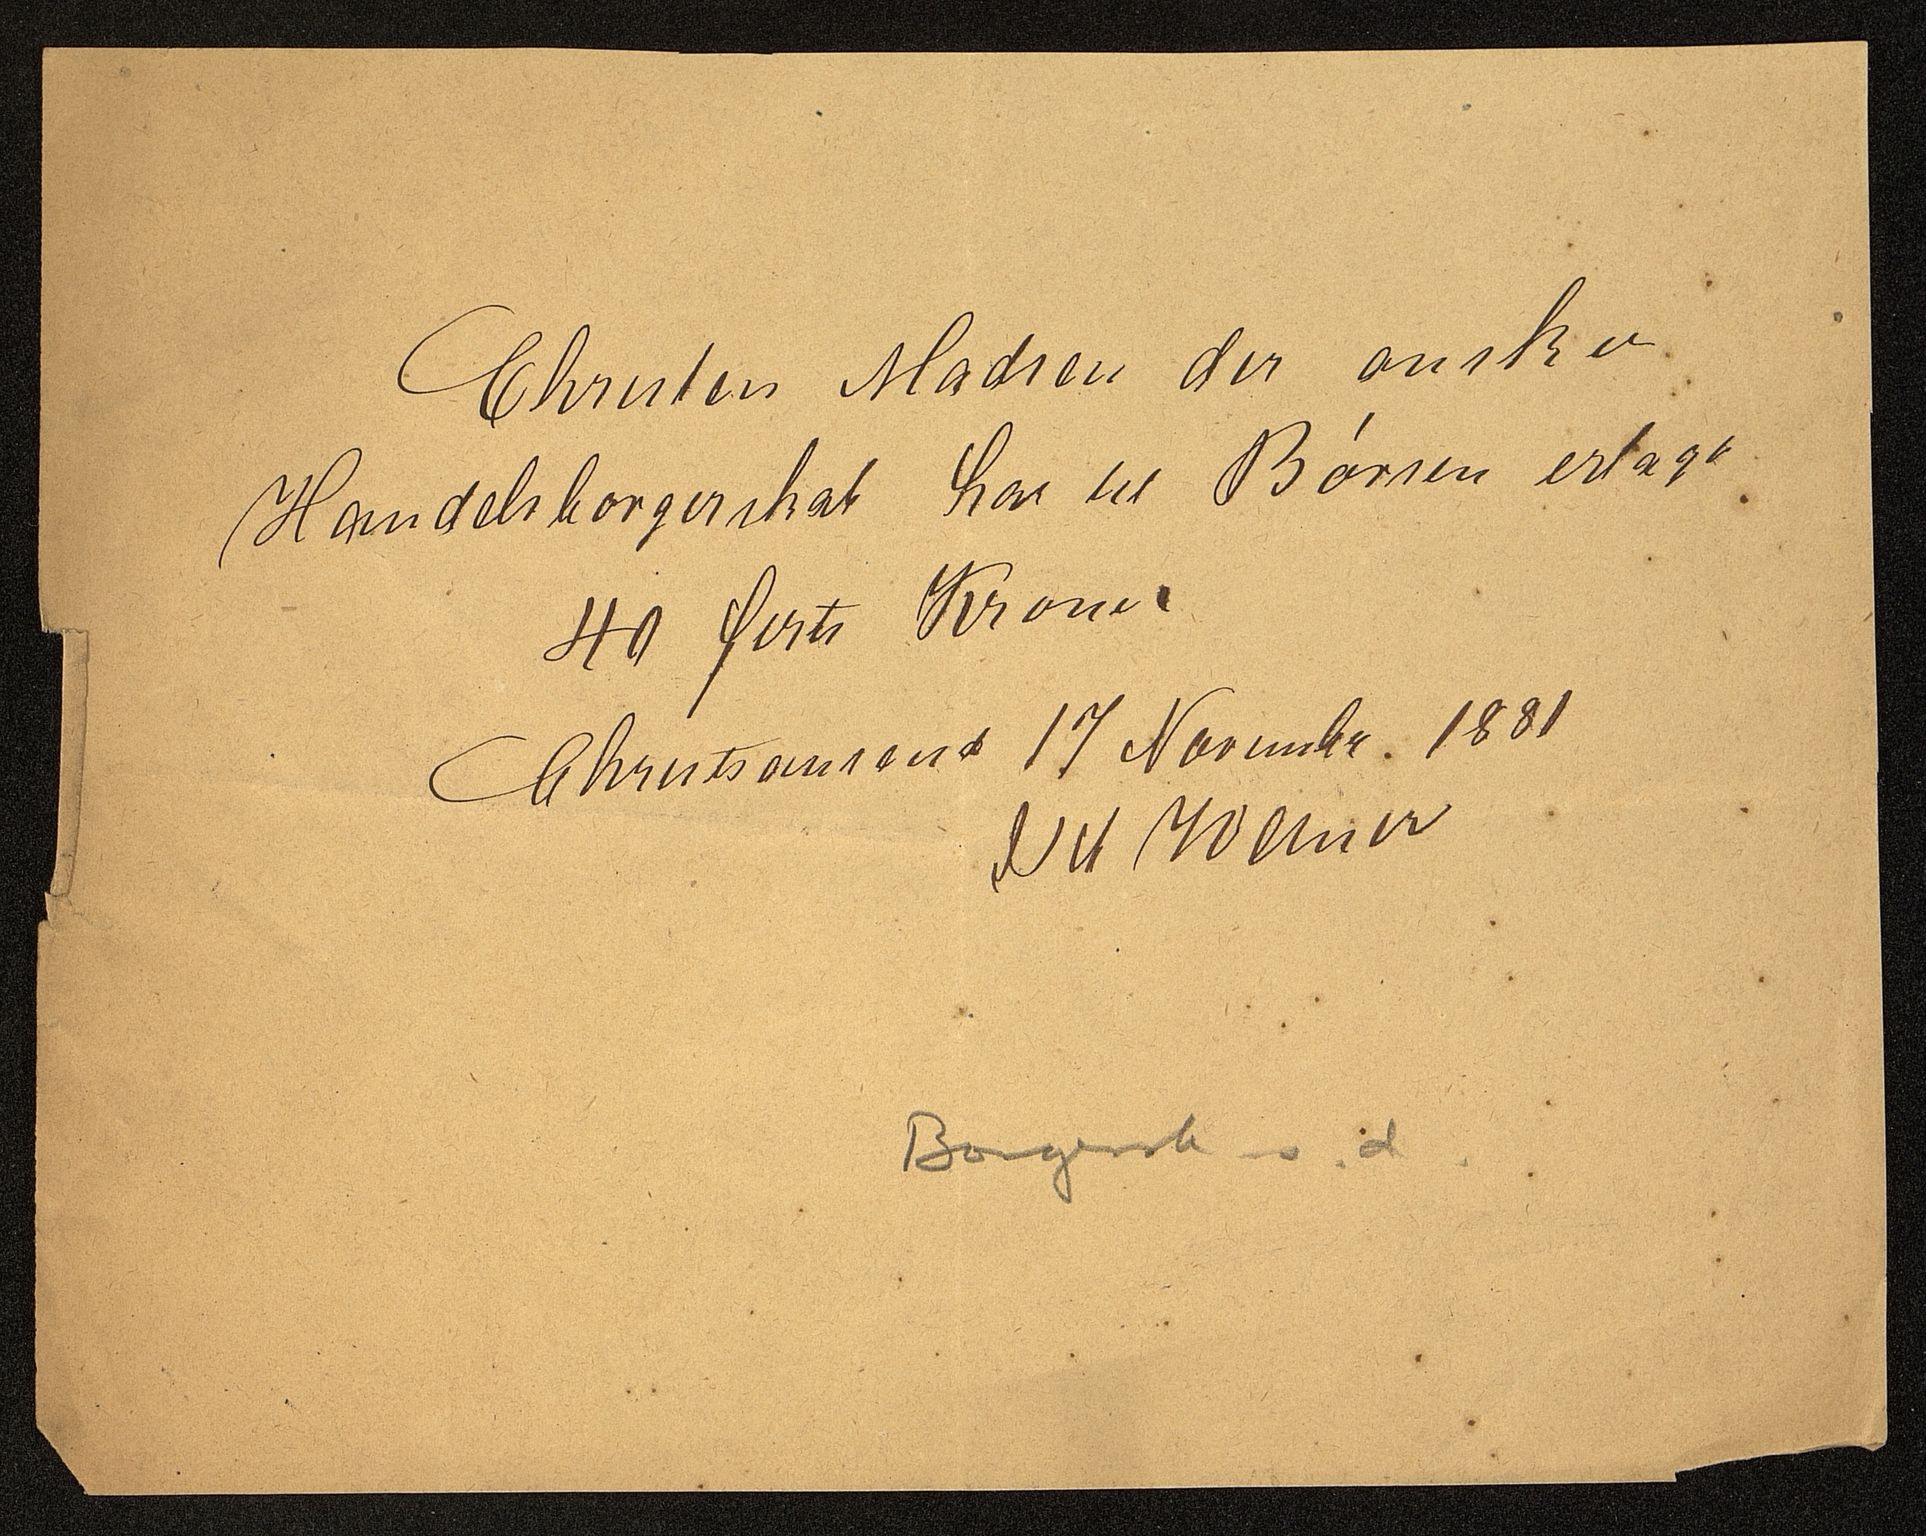 Christen Madsen der ønsker
Handelsborgerskab har til Børsen erlagt
40 firti Kroner
Christiansand 17 November 1881
Werner
Borgersk